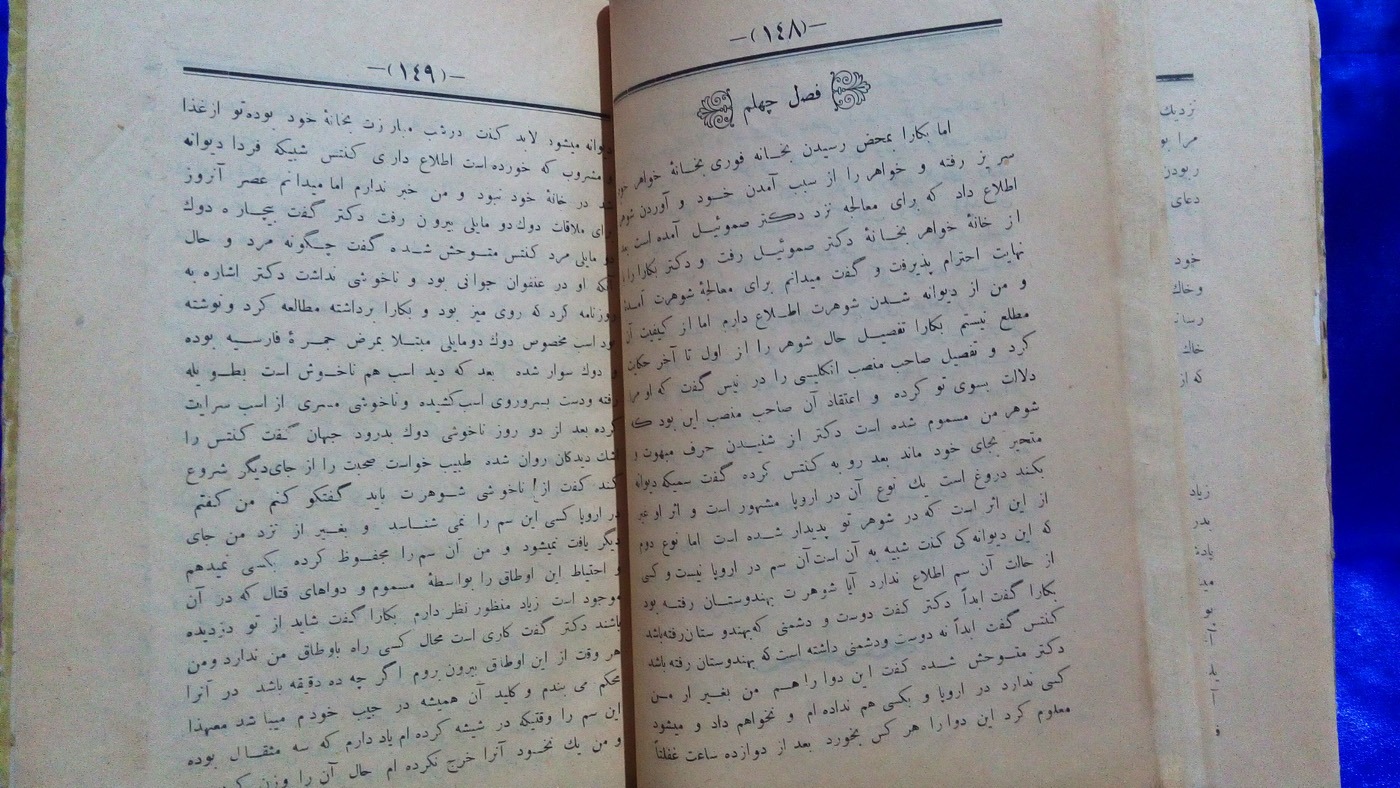 —(١٤٨)—
فصل چهلم
اما بکارا بمحض رسیدن بخانه فوری بخانهٔ خواهر خود
سر پز رفته و خواهر را از سبب آمدن خود و آوردن شوهر
اطلاع داد که برای معالجه نزد دکتر صموئیل آمده است بعد
از خانهٔ خواهر بخانهٔ دکتر صموئیل رفت و دکتر بکارا را با
نهایت احترام پذیرفت و گفت میدانم برای معالجهٔ شوهرت آمدهٔ
و من از دیوانه شدن شوهرت اطلاع دارم اما از کیفیت آن
مطلع نیستم بکارا تفصیل حال شوهر را از اول تا آخر حکایت
کرد و تفصیل صاحب منصب انکلیسی را در نیس گفت که او مرا
دلالت بسوی تو کرده و اعتقاد آن صاحب منصب این بود که
شوهر من مسموم شده است دکتر از شنیدن حرف مبهوت و
متحیر بجای خود ماند بعد رو به کنتس کرده گفت سمیکه دیوانه
بکند دروغ است یك نوع آن در اروپا مشهور است و اثر او غیر
از این اثر است که در شوهر تو پدیدار شده است اما نوع دوم
که این دیوانه کی کنت شبیه به آن است آن سم در اروپا نیست و کسی
از حالت آن سم اطلاع ندارد آیا شوهرت بهندوستان رفته بود
بکارا گفت ابداً دکتر گفت دوست و دشمنی که بهندوستان رفته باشد
کنتس گفت ابداً نه دوست و دشمنی داشته است که بهندوستان رفته باشد
دکتر متوحش شده گفت این دوا را هم من بغیر از من
کسی ندارد در اروپا و بکسی هم نداده ام و نخواهم داد و میشود
معلوم کرد این دوا را هر کس بخورد بعد از دوازده ساعت غفلتاً
—(١٤٩)—
دیوانه میشود لابد کنت در شب مبارزت بخانهٔ خود بوده تو از غذا
و مشروب که خورده است اطلاع داری کنتس شبیکه فردا دیوانه
شد در خانهٔ خود نبود و من خبر ندارم اما میدانم عصر آنروز
برای ملاقات دوك دو مایلی بیرون رفت دکتر گفت بیچاره دوك
دو مایلی مرد کنتس متوحش شده گفت چگونه مرد و حال
آنکه او در عنفوان جوانی بود و ناخوشی نداشت دکتر اشاره به
روزنامه کرد که روی میز بود و بکارا برداشته مطالعه کرد و نوشته
بود اسب مخصوص دوك دومایلی مبتلا بمرض جمرهٔ فارسیه بوده
و دوك سوار شده بعد که دید اسب هم ناخوش است بطویله
رفته و دست بسر و روی اسب کشیده و ناخوشی مسری از اسب سرایت
کرده بعد از دو روز ناخوشی دوك بدرود جهان گفت کنتس را
اشك دیدکان روان شده طبیب خواست صحبت را از جای دیگر شروع
کند گفت از ناخوشی شوهرت باید گفتکو کنم من گفتم
در اروپا کسی این سم را نمی شناسد و بغیر از نزد من جای
دیگر یافت نمیشود و من آن سم را محفوظ کرده بکسی نمیدهم
و احتیاط این اوطاق را بواسطهٔ مسموم و دواهای قتال که در آن
موجود است زیاد منظور نظر دارم بکارا گفت شاید از تو دزدیده
باشند دکتر گفت کاری است محال کسی راه باوطاق من ندارد و من
هر وقت از این اوطاق بیرون بروم اگر چه ده دقیقه باشد در آنرا
محکم می بندم و کلید آن همیشه در جیب خودم میباشد معهذا
این سم را وقتیکه در شیشه کرده ام یاد دارم که سه مثقال بوده
و من یك نخود آنرا خرج نکرده ام حال آن را وزن
نزدیك
مرا
ربودن
دعای
خود
و خاك
خاك
که از
زیاد
بدر